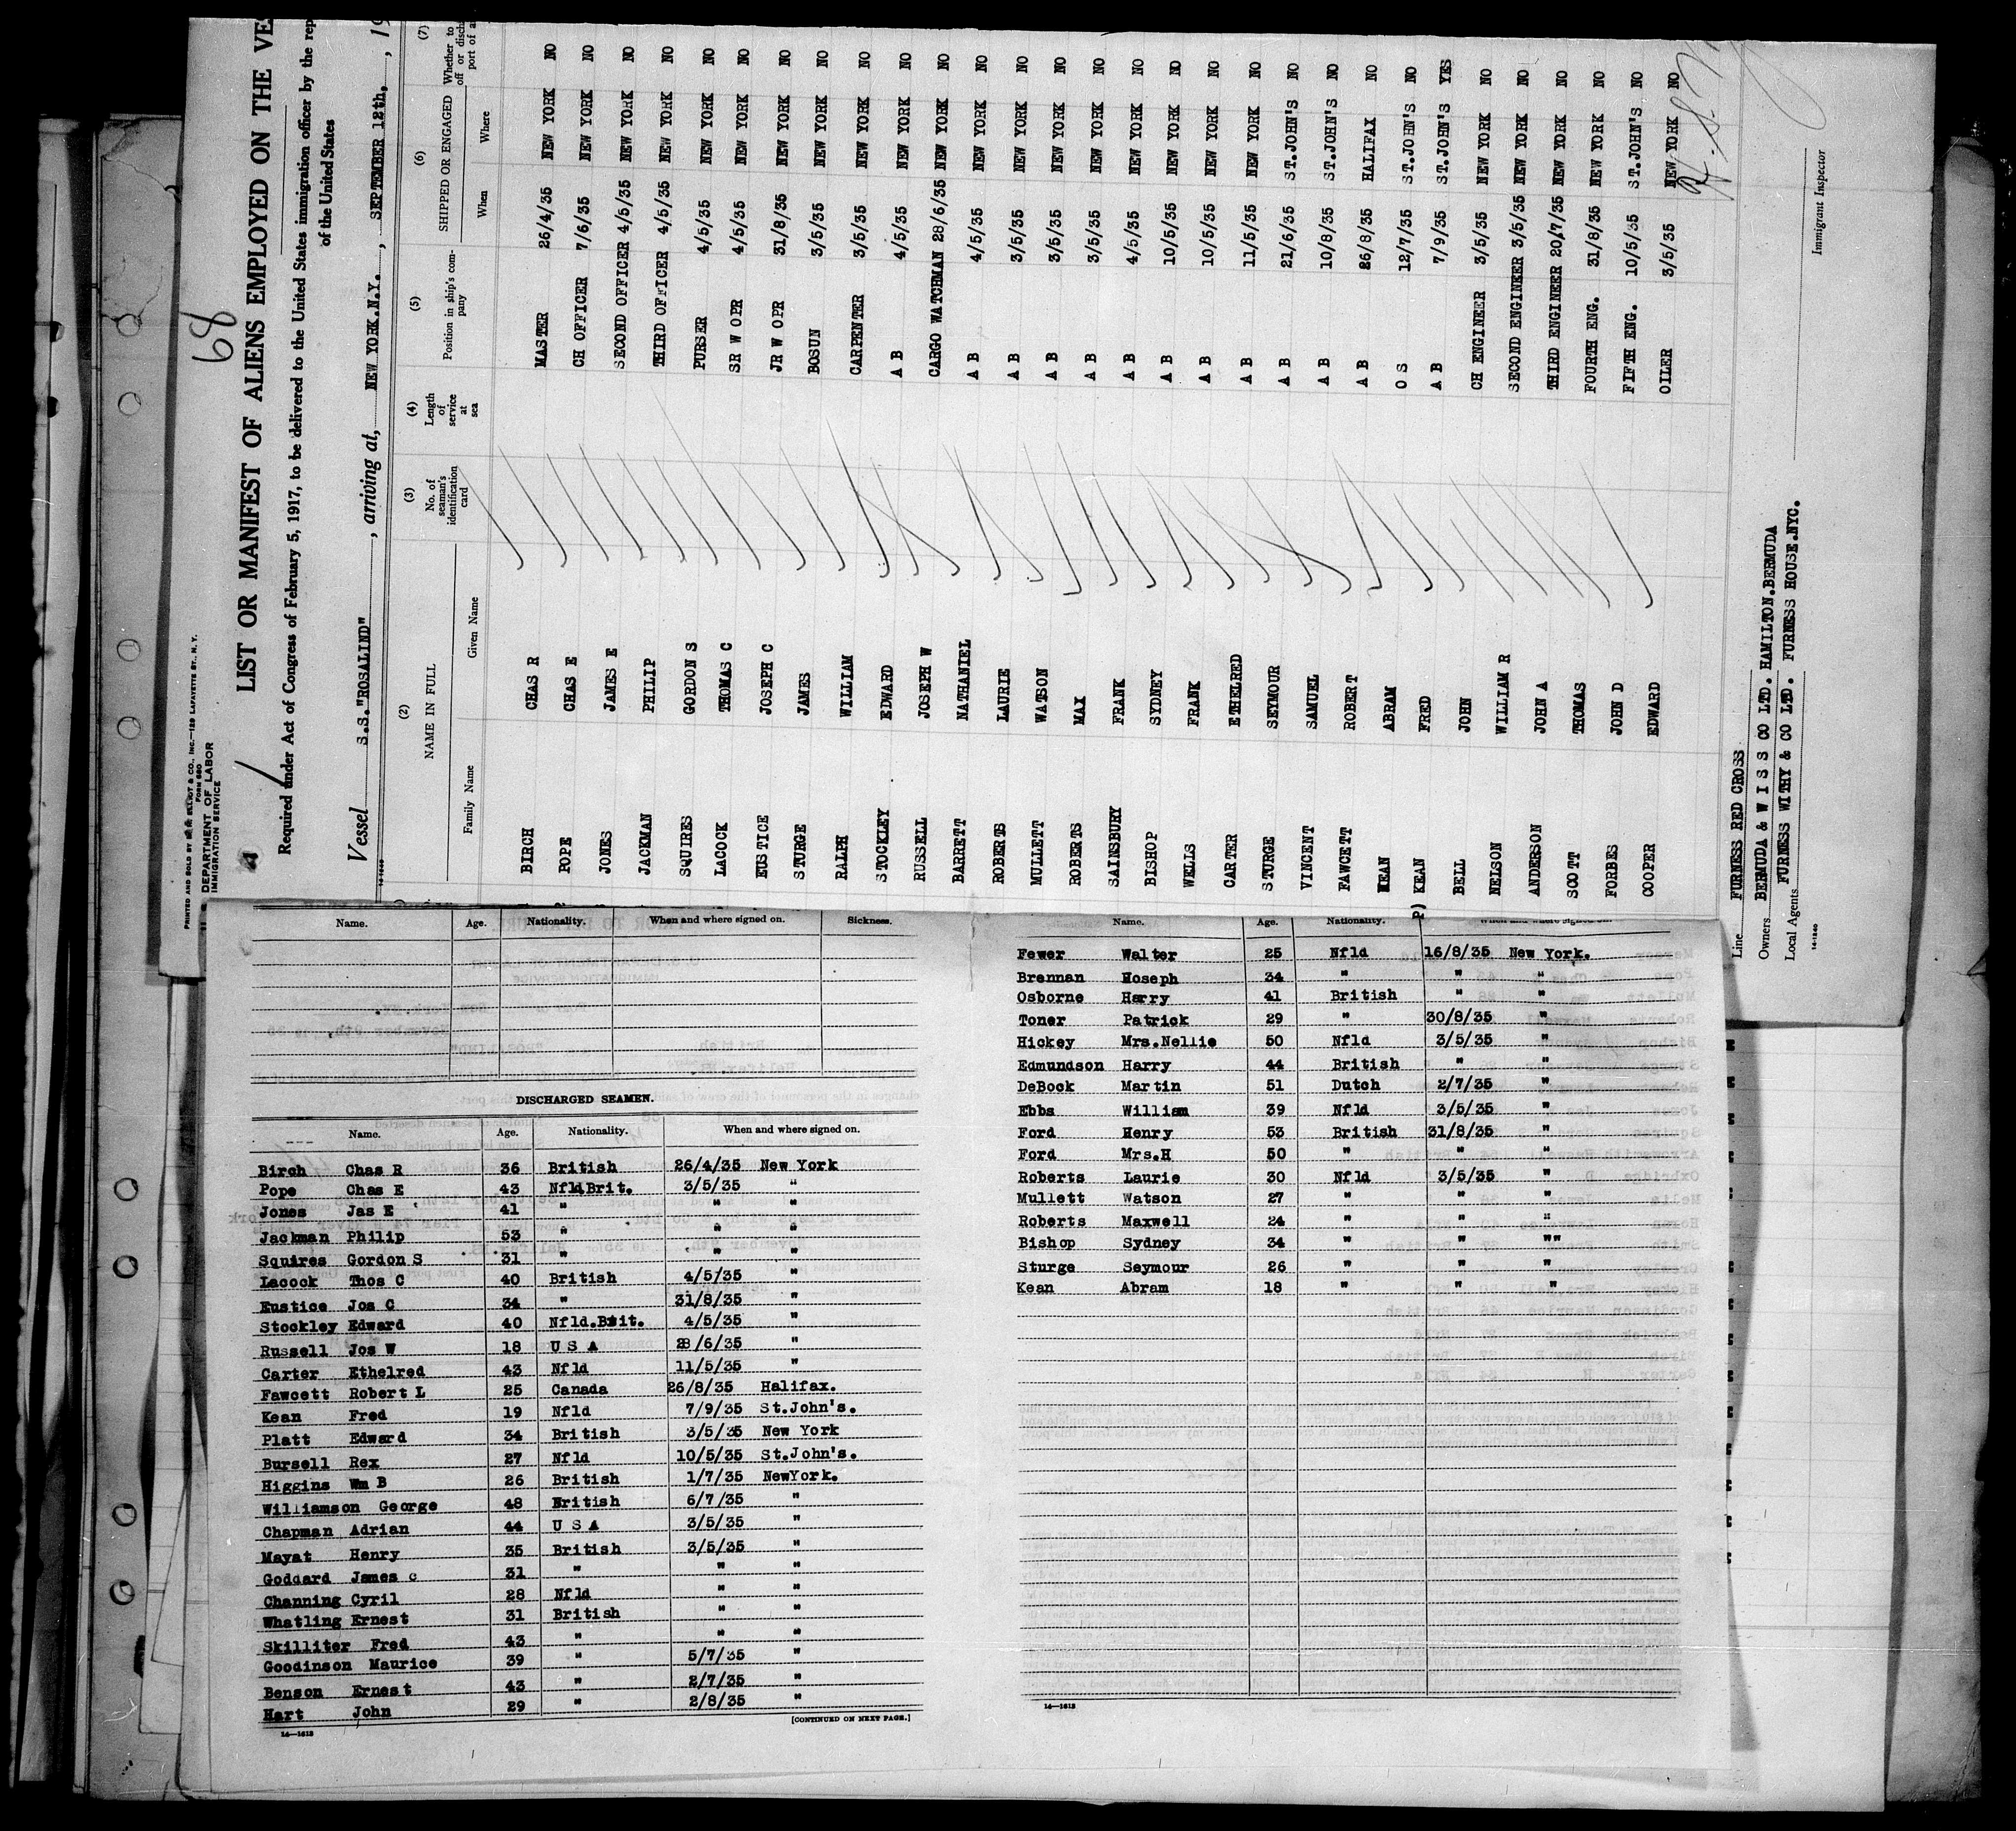 68
PRINTED AND SOLD BY ELLIOT & CO., INC.—129 LAFAYETTE ST., N.Y.
FORM 680
DEPARTMENT OF LABOR
IMMIGRATION SERVICE
LIST OR MANIFEST OF ALIENS EMPLOYED ON THE VE
Required under Act of Congress of February 5, 1917, to be delivered to the United States immigration officer by the rep
of the United States
Vessel S.S."ROSALIND", arriving at, NEW YORK.N.Y., SEPTEMBER 12th., 19
(2) (3) (4) (5) (6) (7)
NAME IN FULL No. of seaman's identification card Length of service at sea Position in ship's company SHIPPED OR ENGAGED Whether to off or disch port of a
Family Name Given Name When Where
BIRCH CHAS R MASTER 26/4/35 NEW YORK NO
POPE CHAS E CH OFFICER 7/6/35 NEW YORK NO
JONES JAMES E SECOND OFFICER 4/5/35 NEW YORK NO
JACKMAN PHILIP THIRD OFFICER 4/5/35 NEW YORK NO
SQUIRES GORDON S PURSER 4/5/35 NEW YORK NO
LACOCK THOMAS C SR W OPR 4/5/35 NEW YORK NO
EUSTICE JOSEPH C JR W OPR 31/8/35 NEW YORK NO
STURGE JAMES BOSUN 3/5/35 NEW YORK NO
RALPH WILLIAM CARPENTER 3/5/35 NEW YORK NO
STOCKLEY EDWARD A B 4/5/35 NEW YORK NO
RUSSELL JOSEPH W CARGO WATCHMAN 28/6/35 NEW YORK NO
BARRETT NATHANIEL A B 4/5/35 NEW YORK NO
ROBERTS LAURIE A B 3/5/35 NEW YORK NO
MULLETT WATSON A B 3/5/35 NEW YORK NO
ROBERTS MAX A B 3/5/35 NEW YORK NO
SAINSBURY FRANK A B 4/5/35 NEW YORK NO
BISHOP SYDNEY A B 10/5/35 NEW YORK NO
WELLS FRANK A B 10/5/35 NEW YORK NO
CARTER ETHELRED A B 11/5/35 NEW YORK NO
STURGE SEYMOUR A B 21/6/35 ST.JOHN'S NO
VINCENT SAMUEL A B 10/8/35 ST.JOHN'S NO
FAWCETT ROBERT A B 26/8/35 HALIFAX NO
KEAN ABRAM O S 12/7/35 ST.JOHN'S NO
P) KEAN FRED A B 7/9/35 ST.JOHN'S YES
BELL JOHN CH ENGINEER 3/5/35 NEW YORK NO
NELSON WILLIAM R SECOND ENGINEER 3/5/35 NEW YORK NO
ANDERSON JOHN A THIRD ENGINEER 20/7/35 NEW YORK NO
SCOTT THOMAS FOURTH ENG. 31/8/35 NEW YORK NO
FORBES JOHN D FIFTH ENG. 10/5/35 ST.JOHN'S NO
COOPER EDWARD OILER 3/5/35 NEW YORK NO
Line FURNESS RED CROSS
Owners BERMUDA & W I S S CO LTD. HAMILTON.BERMUDA
Local Agents FURNESS WITHY & CO LTD. FURNESS HOUSE.NYC.
Immigrant Inspector
14-1240
Name. Age. Nationality. When and where signed on. Sickness.
DISCHARGED SEAMEN.
Name. Age. Nationality. When and where signed on.
Birch Chas R 36 British 26/4/35 New York
Pope Chas E 43 Nfld.Brit. 3/5/35 "
Jones Jas E 41 " " "
Jackman Philip 53 " " "
Squires Gordon S 31 " " "
Lacock Thos C 40 British 4/5/35 "
Eustice Jos C 34 " 31/8/35 "
Stockley Edward 40 Nfld.Brit. 4/5/35 "
Russell Jos W 18 U S A 28/6/35 "
Carter Ethelred 43 Nfld 11/5/35 "
Fawcett Robert L 25 Canada 26/8/35 Halifax.
Kean Fred 19 Nfld 7/9/35 St.John's.
Platt Edward 34 British 3/5/35 New York
Bursell Rex 27 Nfld 10/5/35 St.John's.
Higgins Wm B 26 British 1/7/35 NewYork.
Williamson George 48 British 6/7/35 "
Chapman Adrian 44 U S A 3/5/35 "
Mayat Henry 35 British 3/5/35 "
Goddard James c 31 " " "
Channing Cyril 28 Nfld " "
Whatling Ernest 31 British " "
Skilliter Fred 43 " " "
Goodinson Maurice 39 " 5/7/35 "
Benson Ernest 43 " 2/7/35 "
Hart John 29 " 2/8/35 "
14—1613 [CONTINUED ON NEXT PAGE.]
Name. Age. Nationality. When and where signed on.
Fewer Walter 25 Nfld 16/8/35 New York.
Brennan Hoseph 34 " " "
Osborne Harry 41 British " "
Toner Patrick 29 " 30/8/35 "
Hickey Mrs.Nellie 50 Nfld 3/5/35 "
Edmundson Harry 44 British " "
DeBock Martin 51 Dutch 2/7/35 "
Ebbs William 39 Nfld 3/5/35 "
Ford Henry 53 British 31/8/35 "
Ford Mrs.H 50 " " "
Roberts Laurie 30 Nfld 3/5/35 "
Mullett Watson 27 " " "
Roberts Maxwell 24 " " "
Bishop Sydney 34 " " ""
Sturge Seymour 26 " " "
Kean Abram 18 " " "
14—1613